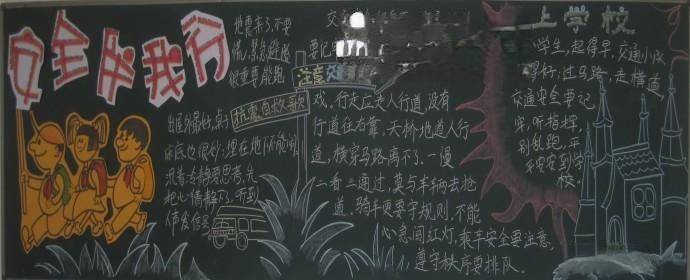 安全伴我行
地震来了不要
慌,紧急避险
很重要能跑
抗震自救歌
出室外最好,桌子
床底也很妙,埋在地下不能闹
沉着冷静要思考,先
把心情静下,听到
人声发信号
交
要记
注意交
戏,行走应走人行道,没有
行道往右靠,天桥地道人行
道,横穿马路离不了,一慢
二看三通过,莫与车辆去抢
道,骑车更要守规则,不能
心急闯红灯,乘车安全要注意,
遵守秩序要排队。
上学校
小学生,起得早,交通小队
好,过马路,走横道,
交通安全要记
牢,听指挥,
别乱跑,平
平安安到学
校。